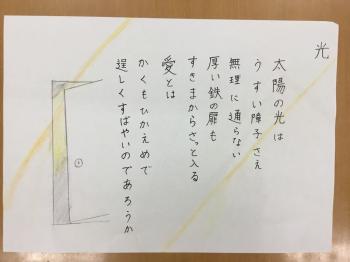 光
太陽の光は
うすい障子さえ
無理に通らない
厚い鉄の扉も
すきまからさっと入る
愛とは
かくもひかえめで
逞しくすばやいのであろうか